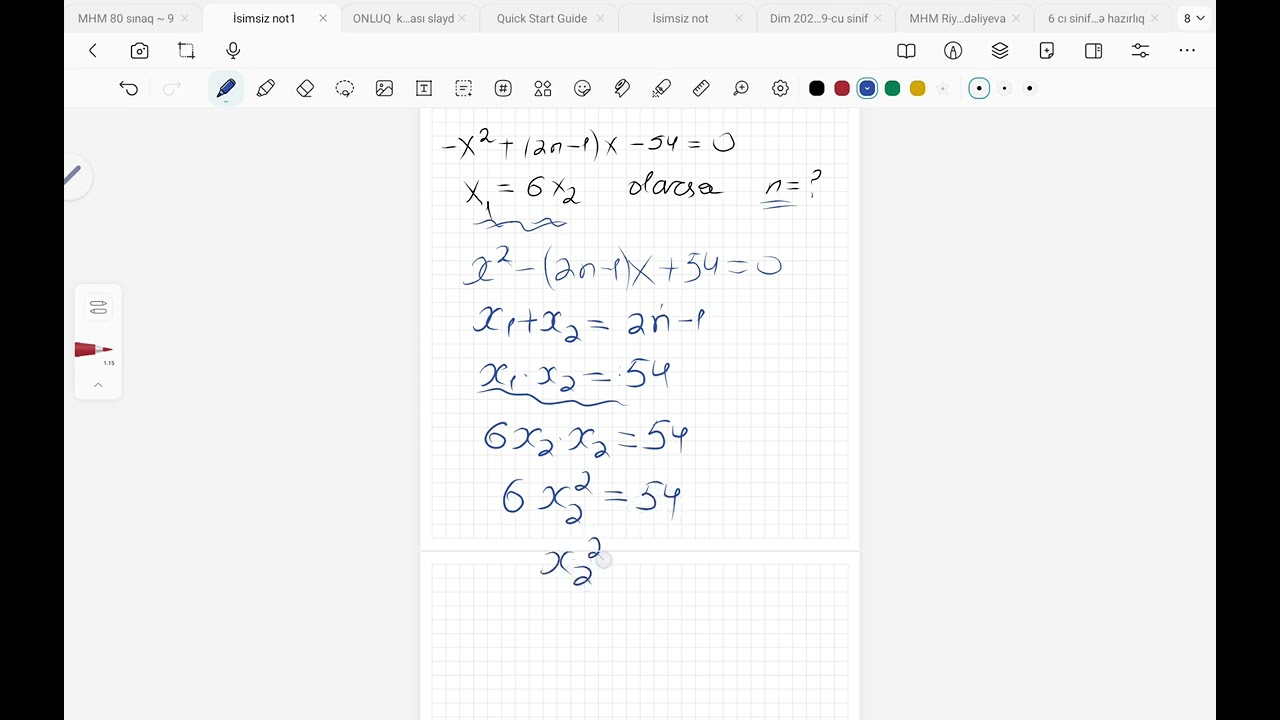 MHM 80 sınaq ~ 9
İsimsiz not1
ONLUQ k...ası slayd
Quick Start Guide
İsimsiz not
Dim 202...9-cu sinif
MHM Riy...dəliyeva
6 cı sinif...ə hazırlıq
8
1.15
-x² + (2n-1)x - 54 = 0
x₁ = 6x₂ olarsa n = ?
x² - (2n-1)x + 54 = 0
x₁ + x₂ = 2n - 1
x₁ · x₂ = 54
6x₂ · x₂ = 54
6 x₂² = 54
x₂²